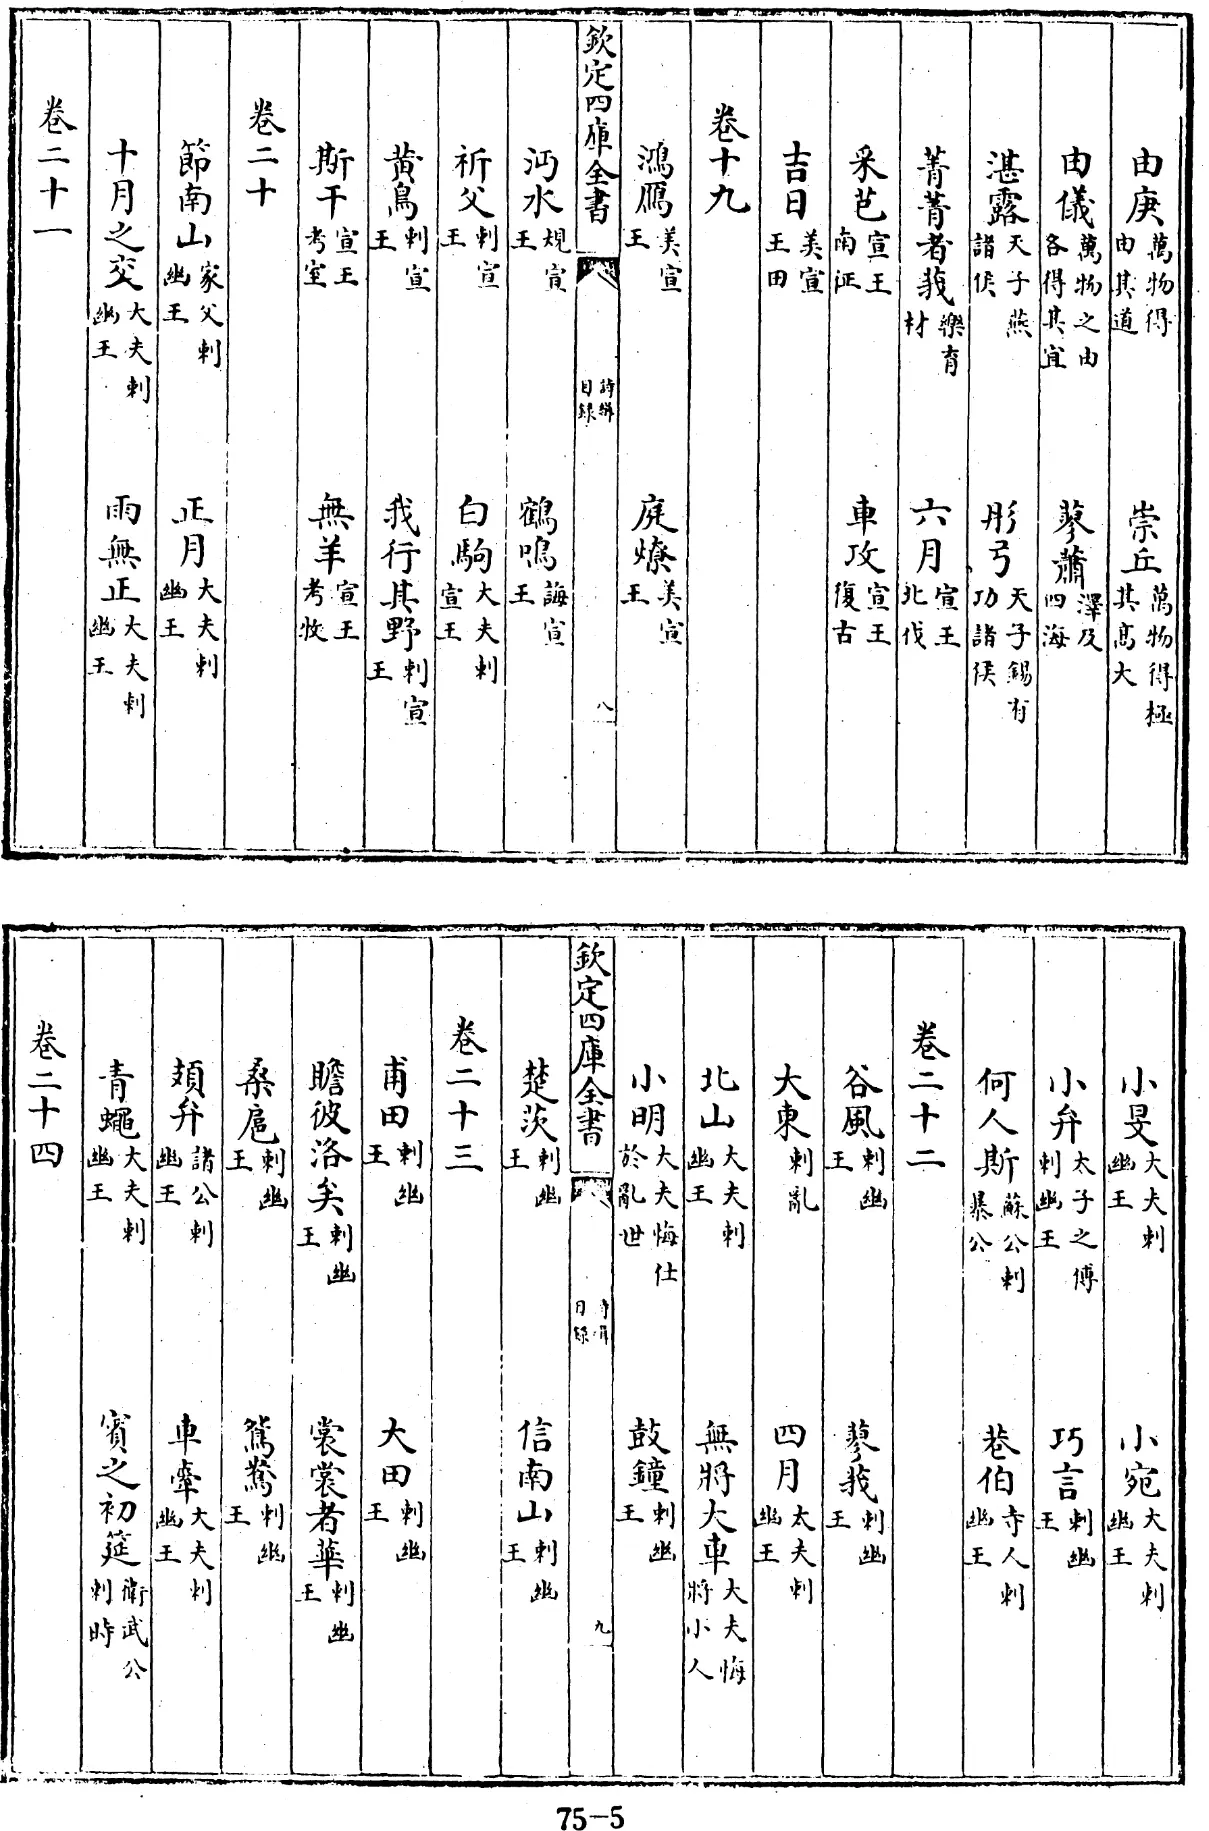 由庚萬物得由其道　崇丘萬物得極其高大
由儀萬物之由各得其宜　蓼蕭澤及四海
湛露天子燕諸侯　彤弓天子錫有功諸侯
菁菁者莪樂育材　六月宣王北伐
采芑宣王南征　車攻宣王復古
吉日美宣王田
卷十九
鴻鴈美宣王　庭燎美宣王
欽定四庫全書　詩緝目錄　八
沔水規宣王　鶴鳴誨宣王
祈父刺宣王　白駒大夫刺宣王
黃鳥刺宣王　我行其野刺宣王
斯干宣王考室　無羊宣王考牧
卷二十
節南山家父刺幽王　正月大夫刺幽王
十月之交大夫刺幽王　雨無正大夫刺幽王
卷二十一
小旻大夫刺幽王　小宛大夫刺幽王
小弁太子之傅刺幽王　巧言刺幽王
何人斯蘇公刺暴公　巷伯寺人刺幽王
卷二十二
谷風刺幽王　蓼莪刺幽王
大東刺亂　四月大夫刺幽王
北山大夫刺幽王　無將大車大夫悔將小人
小明大夫悔仕於亂世　鼓鐘刺幽王
欽定四庫全書　詩緝目錄　九
楚茨刺幽王　信南山刺幽王
卷二十三
甫田刺幽王　大田刺幽王
瞻彼洛矣刺幽王　裳裳者華刺幽王
桑扈刺幽王　鴛鴦刺幽王
頍弁諸公刺幽王　車舝大夫刺幽王
青蠅大夫刺幽王　賓之初筵衛武公刺時
卷二十四
75-5